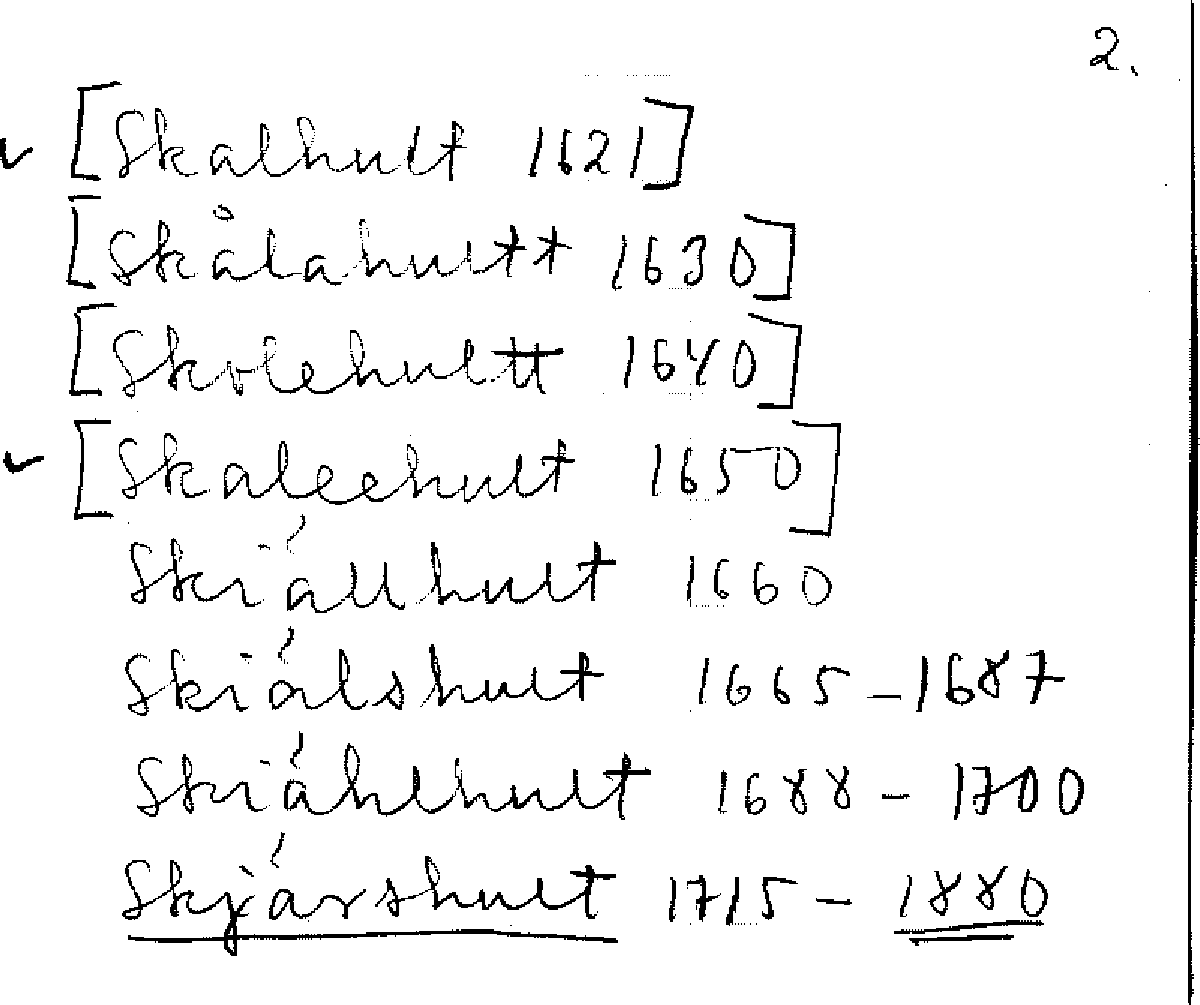 2.
✓ [Skalhult 1621]
[Skålahultt 1630]
[Skolehultt 1640]
✓ [Skaleehult 1650]
Skiállhult 1660
Skiálshult 1665-1687
Skiáhlhult 1688 - 1700
Skjárshult 1715 - 1880